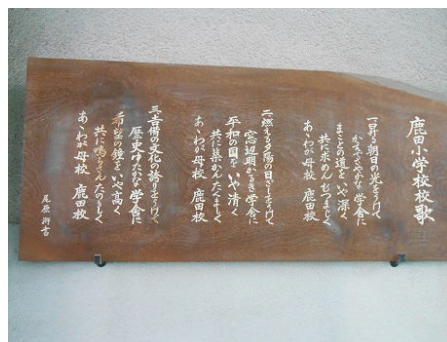 鹿田小学校校歌
一、昇る朝日の光をうけて
かゞやかな学舎に
まことの道をいや深く
共に求めんむつまじく
あゝわが母校 鹿田校
二、燃える夕陽の日ざしをうけて
窓辺明かるき学舎に
平和の国をいや清く
共に築かんたくましく
あゝわが母校 鹿田校
三、吉備の文化の誇りをうけて
歴史ゆたかな学舎に
希望の鐘をいや高く
共に鳴らさんたのもしく
あゝわが母校 鹿田校